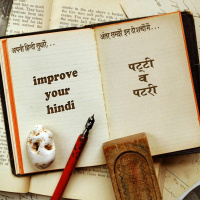 अपनी हिन्दी सुधारें...
improve
your
hindi
अंतर समझें इन शब्दों में...
पट्टी
व
पटरी